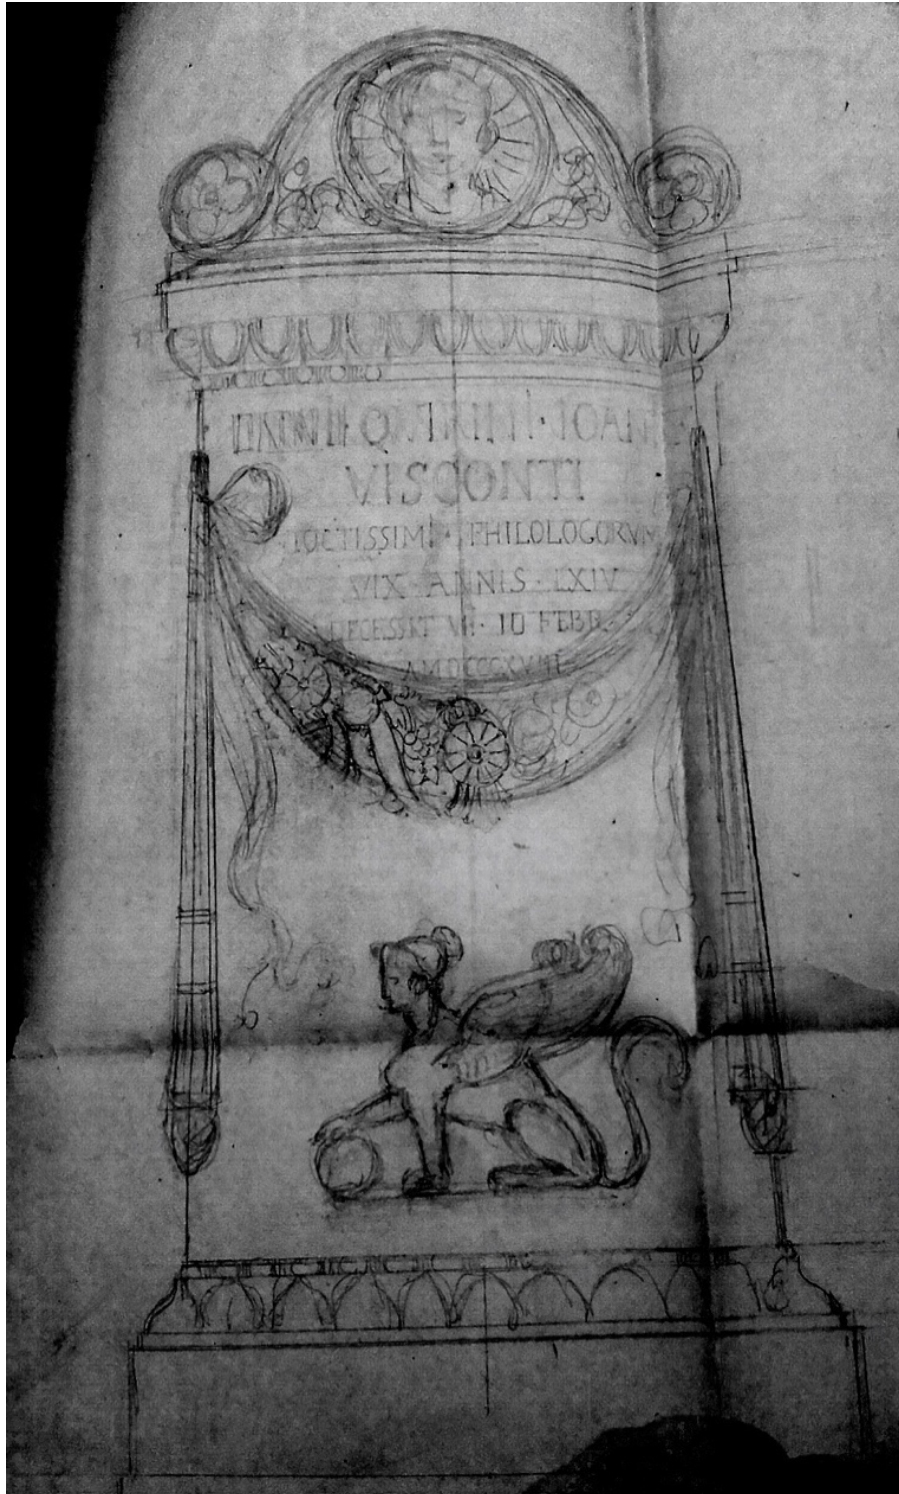 QVIRINI · IOAN
VISCONTI
DOCTISSIMI · PHILOLOGORVM
VIX · ANNIS · LXIV
DECESSIT VII · ID FEBR ·
A MDCCCXVIII